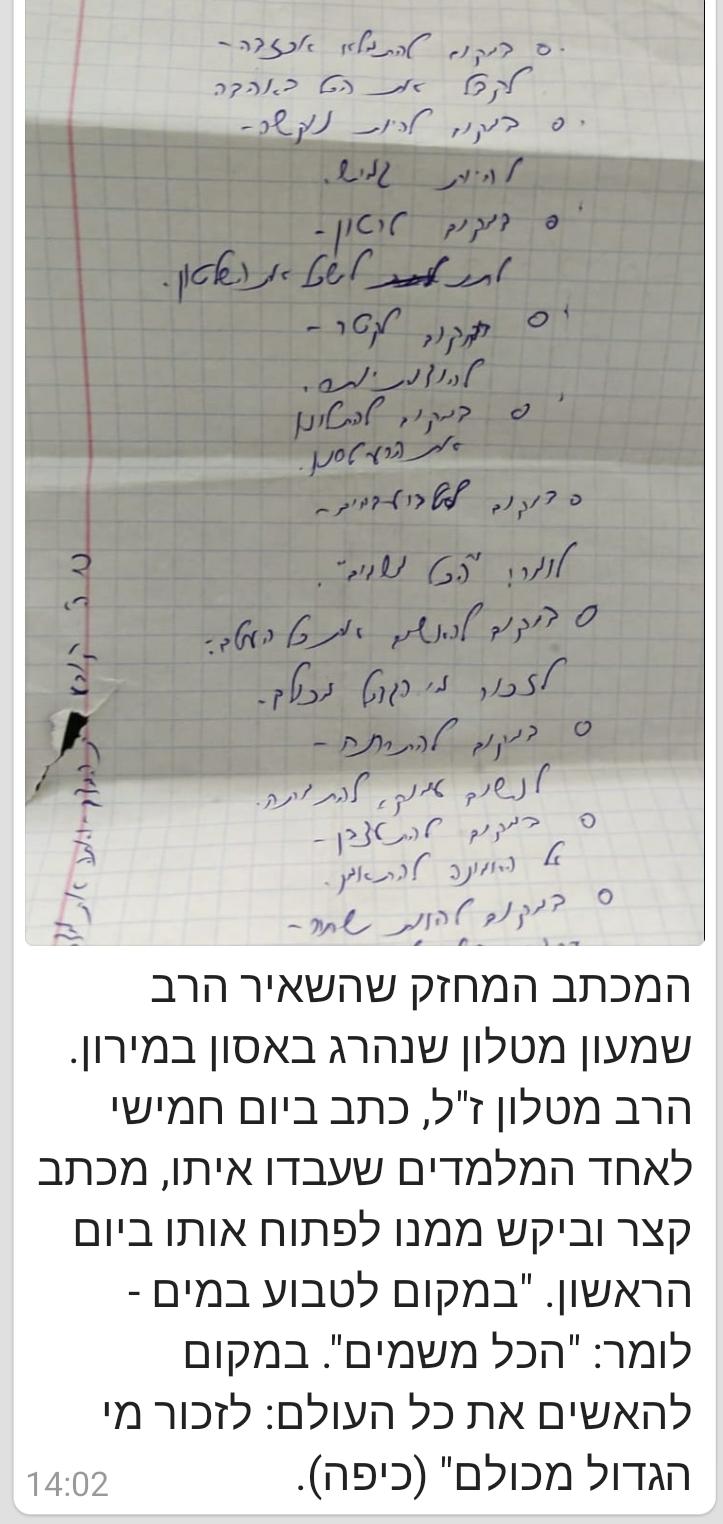 במקום להתמלא אכזבה -
לקבל את הכל באהבה
במקום להיות נוקשה -
להיות גמיש.
במקום לטעון -
לתת לשכל את השלטון.
במקום לקטר -
במקום להתלונן
במקום לטבוע במים -
לומר: "הכל משמים".
במקום להאשים את כל העולם:
לזכור מי הגדול מכולם.
במקום להתרתח -
לנשום עמוק,
במקום להתעצבן -
במקום להיות שחור -
המכתב המחזק שהשאיר הרב
שמעון מטלון שנהרג באסון במירון.
הרב מטלון ז"ל, כתב ביום חמישי
לאחד המלמדים שעבדו איתו, מכתב
קצר וביקש ממנו לפתוח אותו ביום
הראשון. "במקום לטבוע במים -
לומר: "הכל משמים". במקום
להאשים את כל העולם: לזכור מי
הגדול מכולם" (כיפה).
14:02